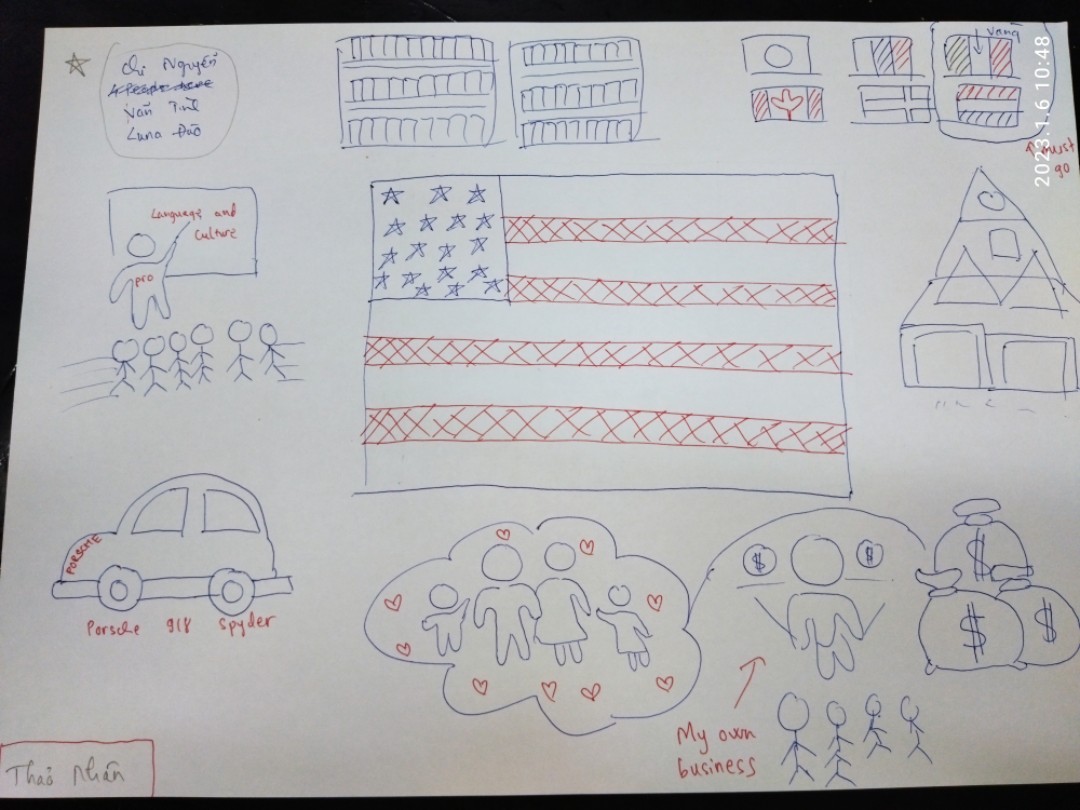 Chi Nguyễn
Văn Tình
Luna Đào
vàng
2023.1.6 10:48
↑ must
go
Languages and
Culture
pro
PORSCHE
Porsche 918 Spyder
$ $
$
$ $
My own
business
Thảo Nhân